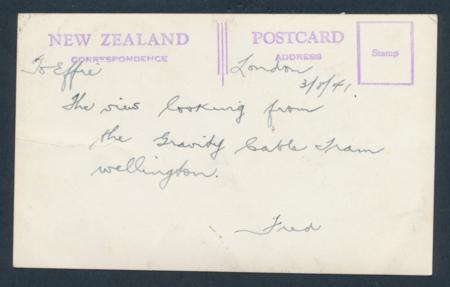 NEW ZEALAND POSTCARD
CORRESPONDENCE ADDRESS
Stamp
To Effie London
3/8/41.
The view looking from
the Gravity Cable Tram
wellington.
Fred